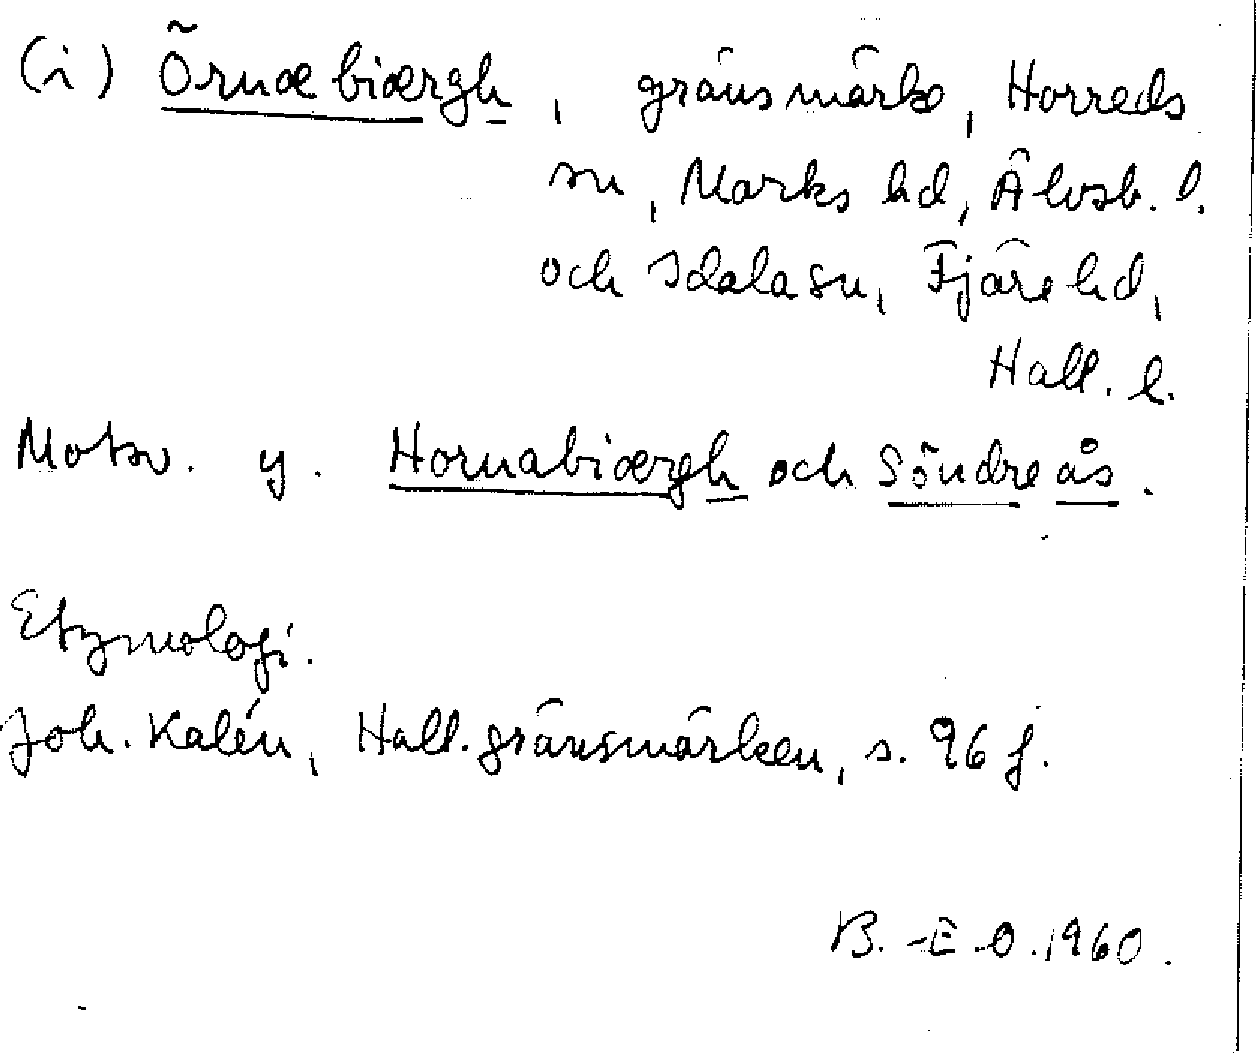 (i) Örnæbiærgh, gränsmärke, Horreds
sn, Marks hd, Älvsb. l.
och Idala sn, Fjäre hd,
Hall. l.
Motsv. y. Hornabiærgh och Söndre ås.
Etymologi.
Joh. Kalén, Hall. gränsmärken, s. 96 f.
B.-E. O. 1960.